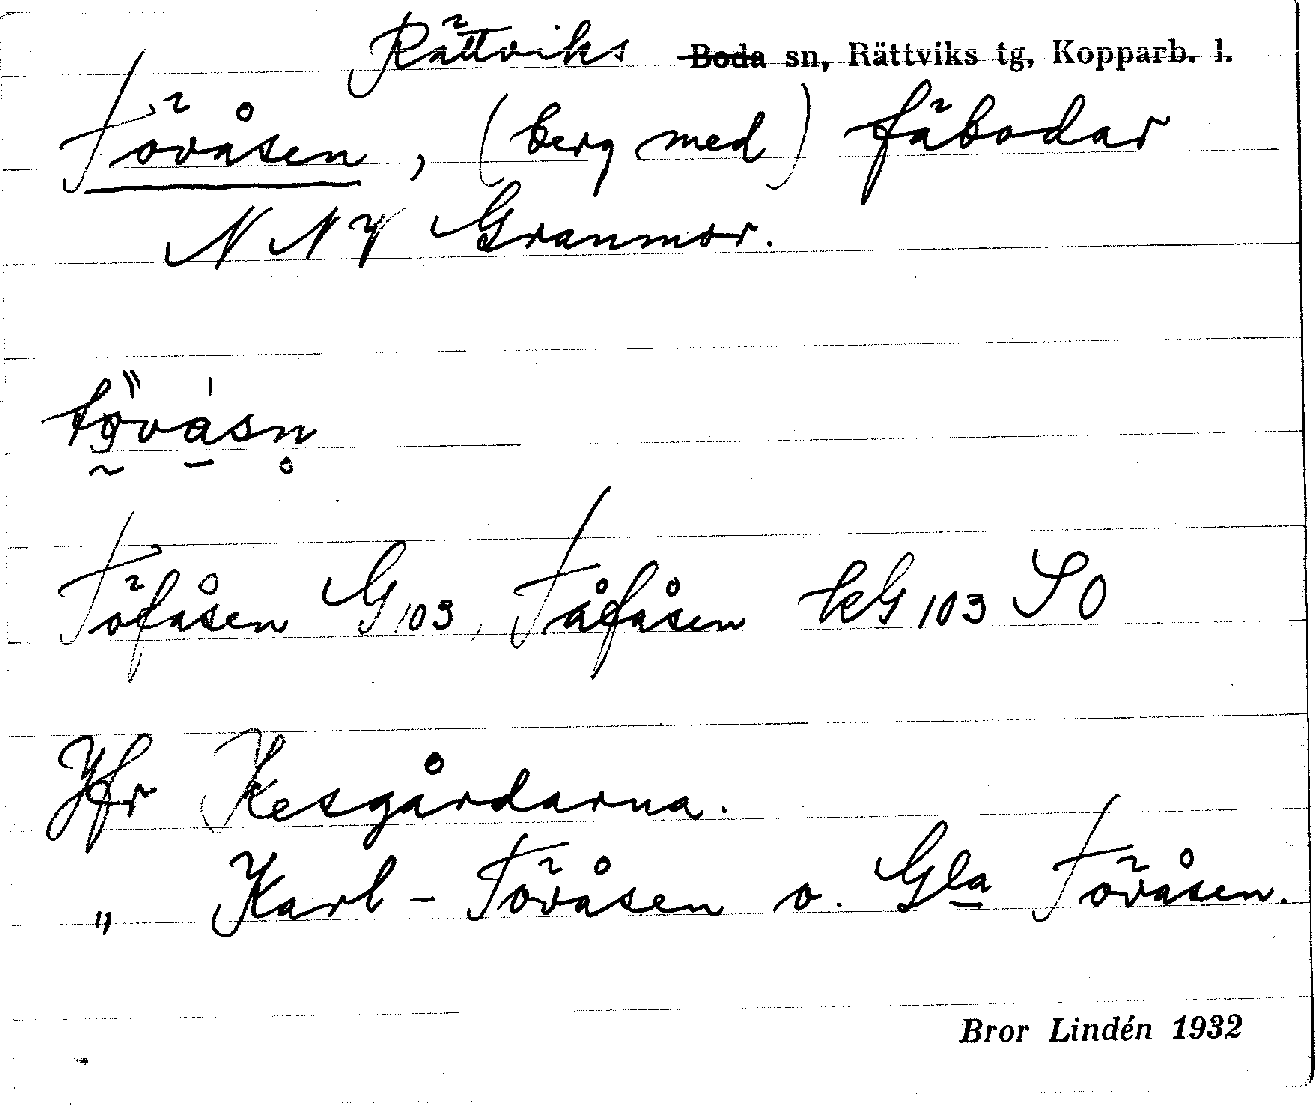 Rättviks Boda sn, Rättviks tg, Kopparb. l.
Tövåsen, (berg med) fäbodar
NNV Granmor.
tövåsn
Töfåsen G103, Tåfåsen kG103 SO
Jfr Kesgårdarna.
„ Karl-Tövåsen o. Gla Tövåsen.
Bror Lindén 1932